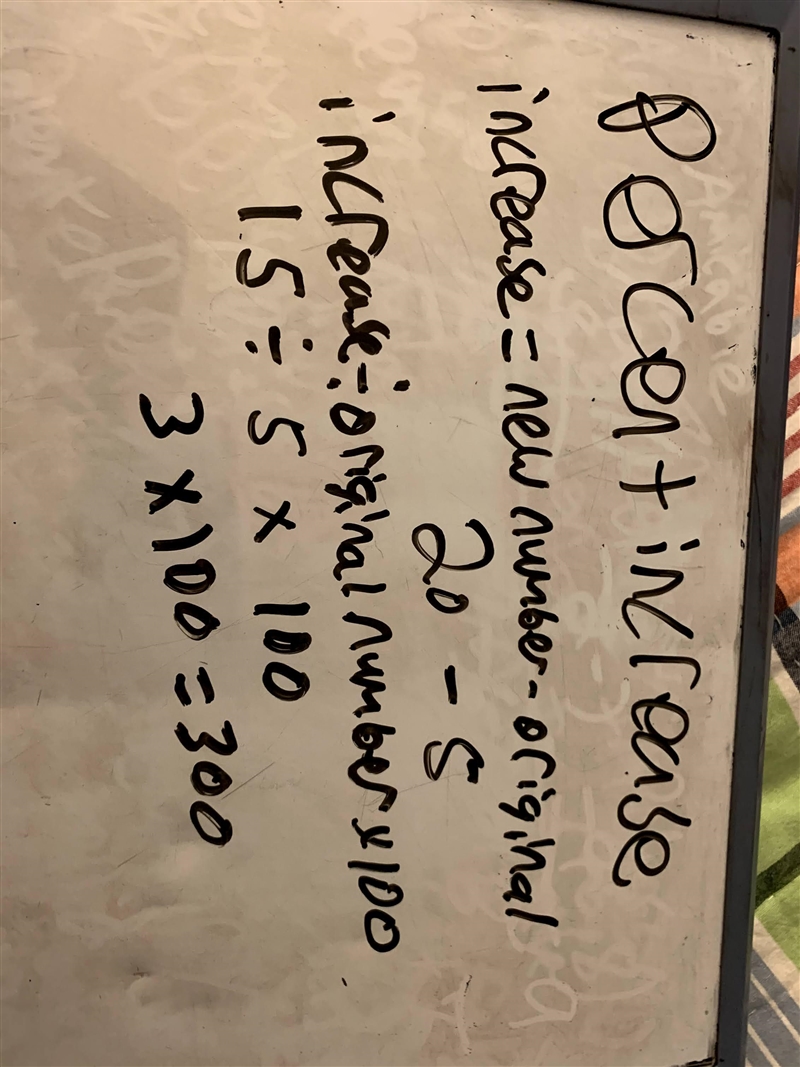 Percent increase
increase = new number - original
20 - 5
increase ÷ original number x 100
15 ÷ 5 x 100
3 x 100 = 300